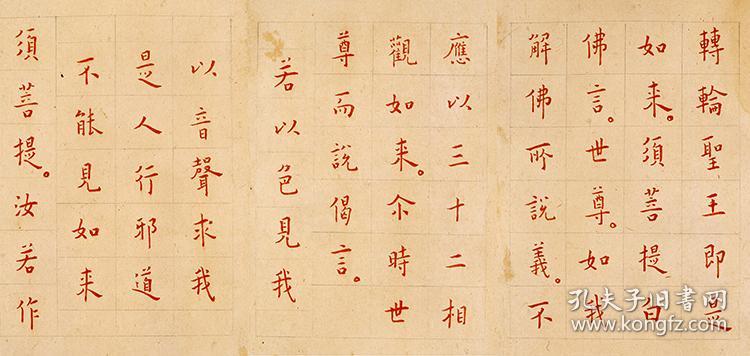 轉輪聖王即是
如来。須菩提白
佛言。世尊。如我
解佛所說義。不
應以三十二相
觀如来。尒時世
尊而說偈言。
若以色見我
以音聲求我
是人行邪道
不能見如来
須菩提。汝若作
孔夫子旧书网
www.kongfz.com